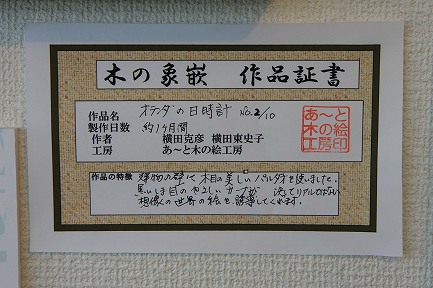 木の象嵌 作品証書
作品名 オランダの日時計 No.2/10
製作日数 約1ヶ月間
作者 横田克彦 横田東史子
工房 あ〜と木の絵工房
あ〜と
木の絵
工房印
作品の特徴 建物の壁に木目の美しいバール材を使いました。
黒いしま目のやさしいカーブが 決してリアルではない
想像の世界の絵を誘導してくれます。